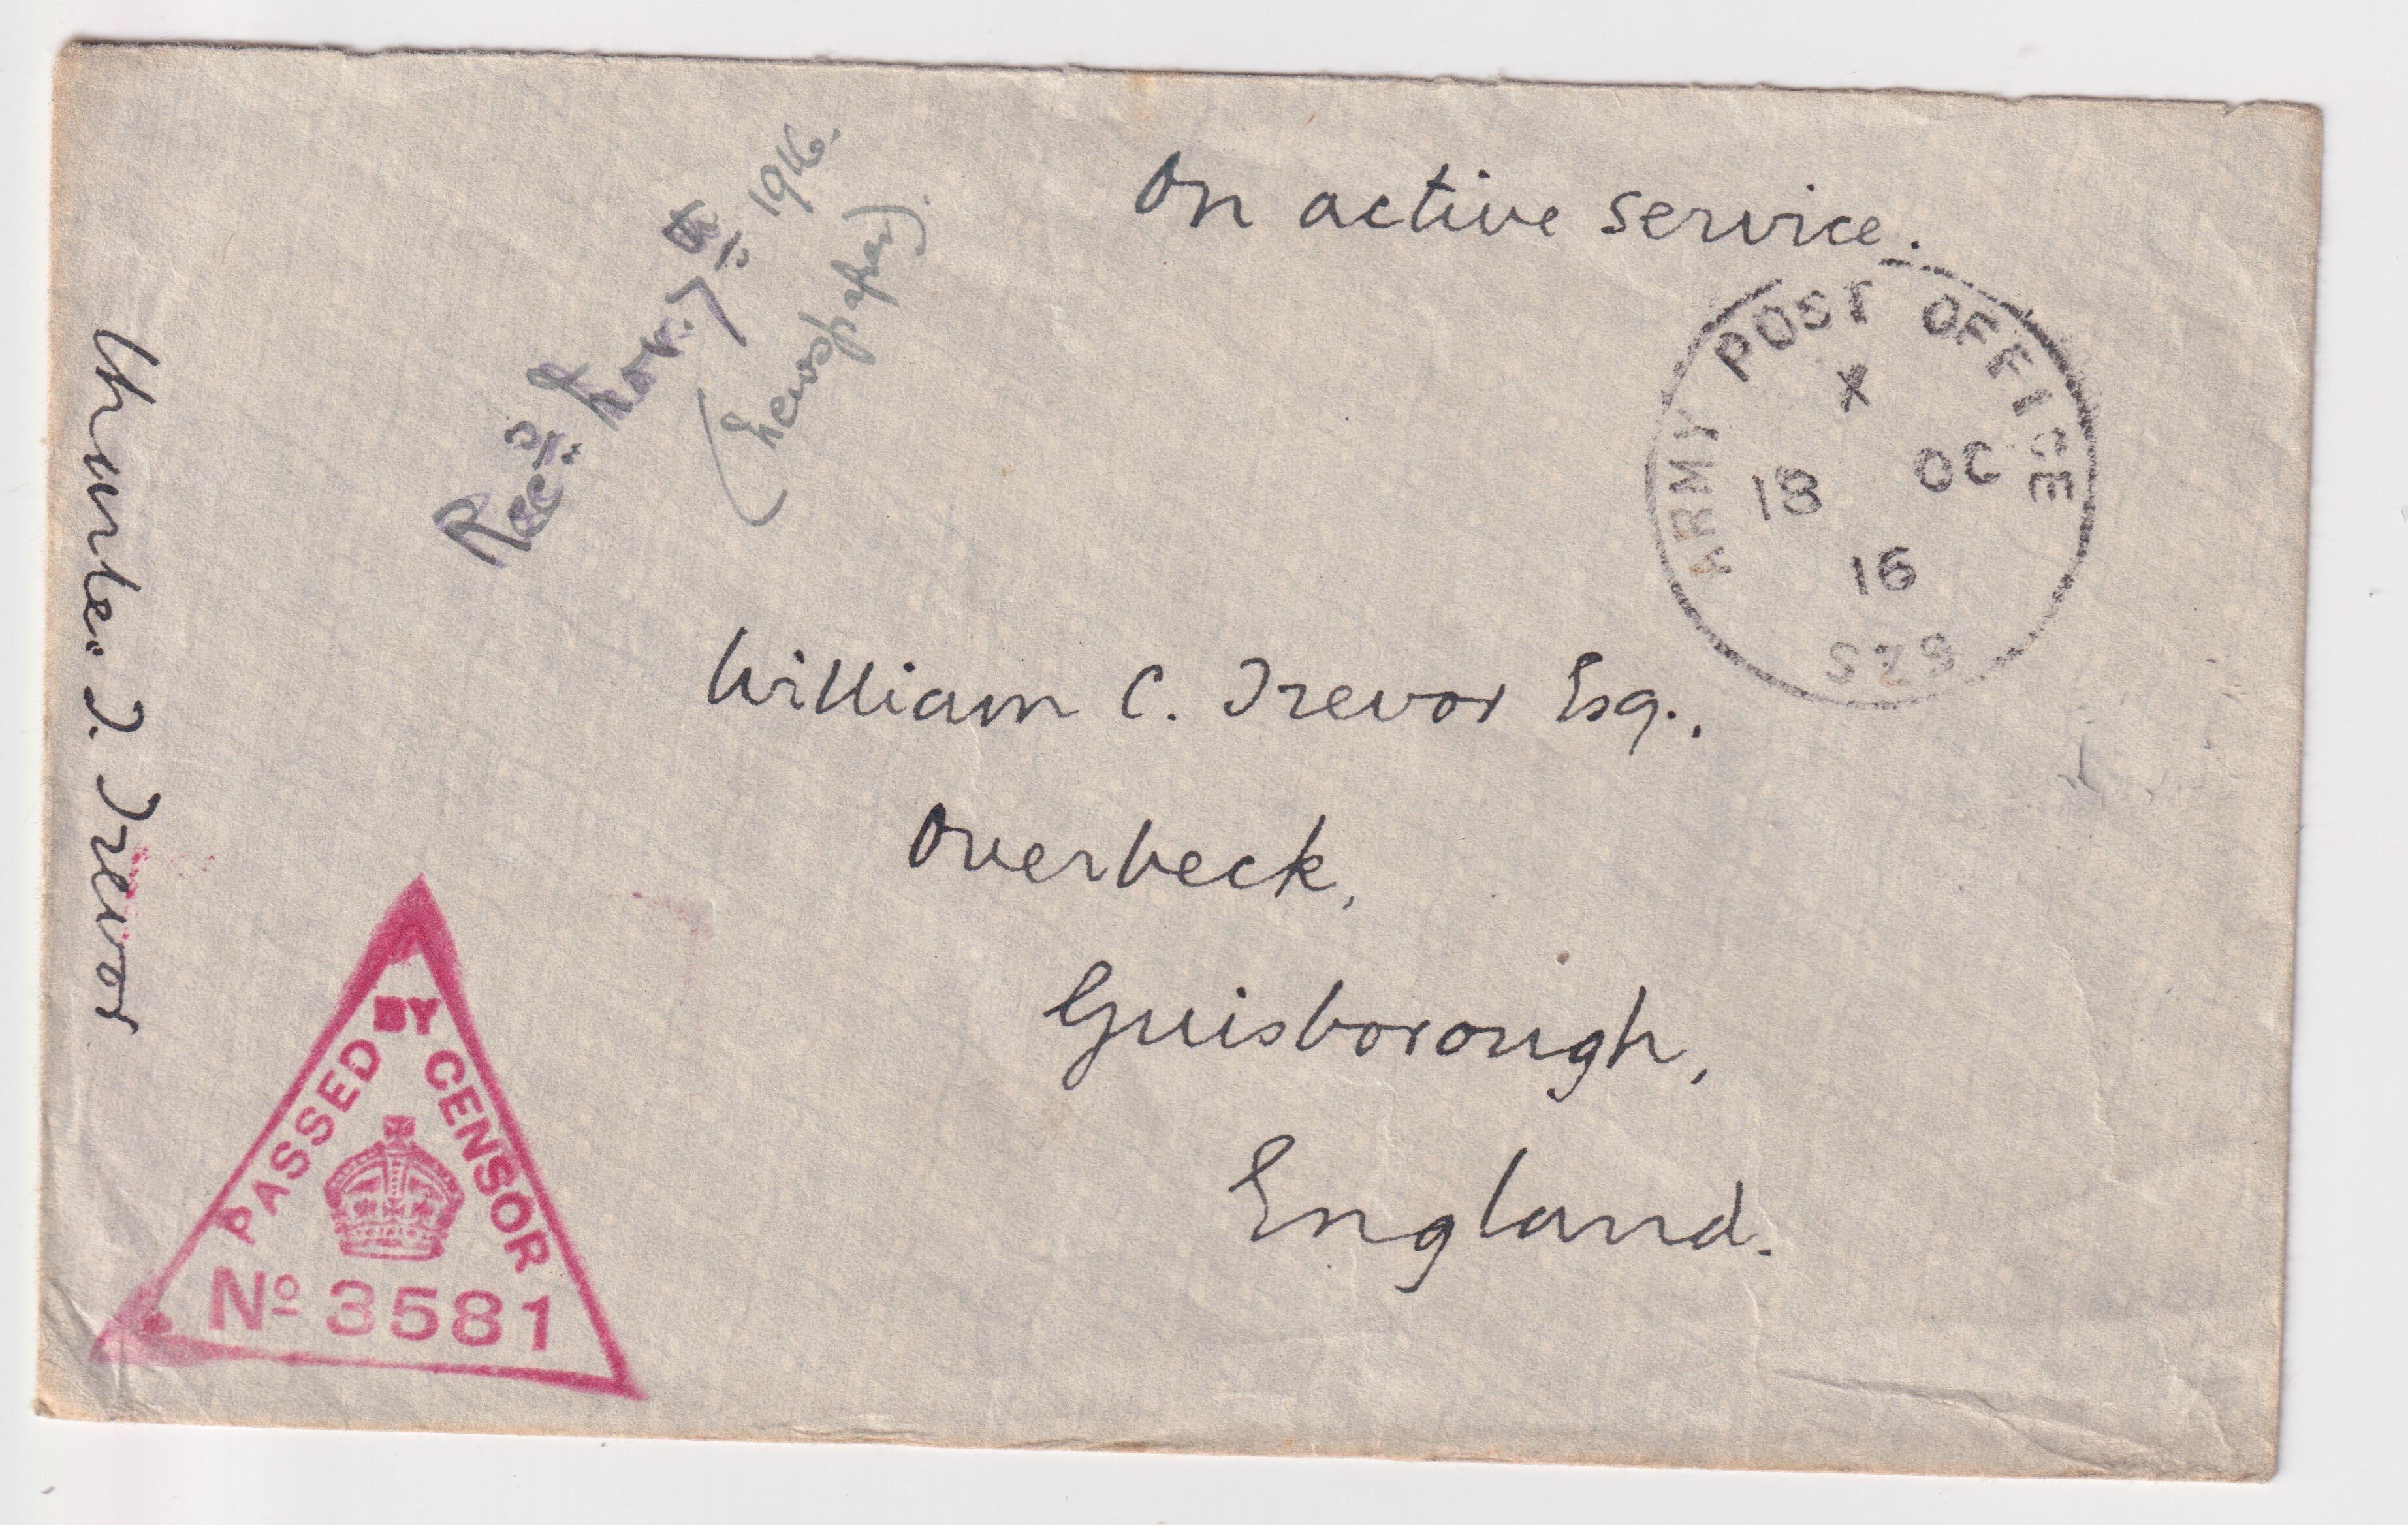 On active service.
Recd. Nov. 7th 1916.
(Newspaper).
ARMY POST OFFICE
X
18 OC
16
SZ9
William C. Trevor Esq.,
Overbeck,
Guisborough,
England.
T. Trevor
PASSED BY CENSOR
No 3581